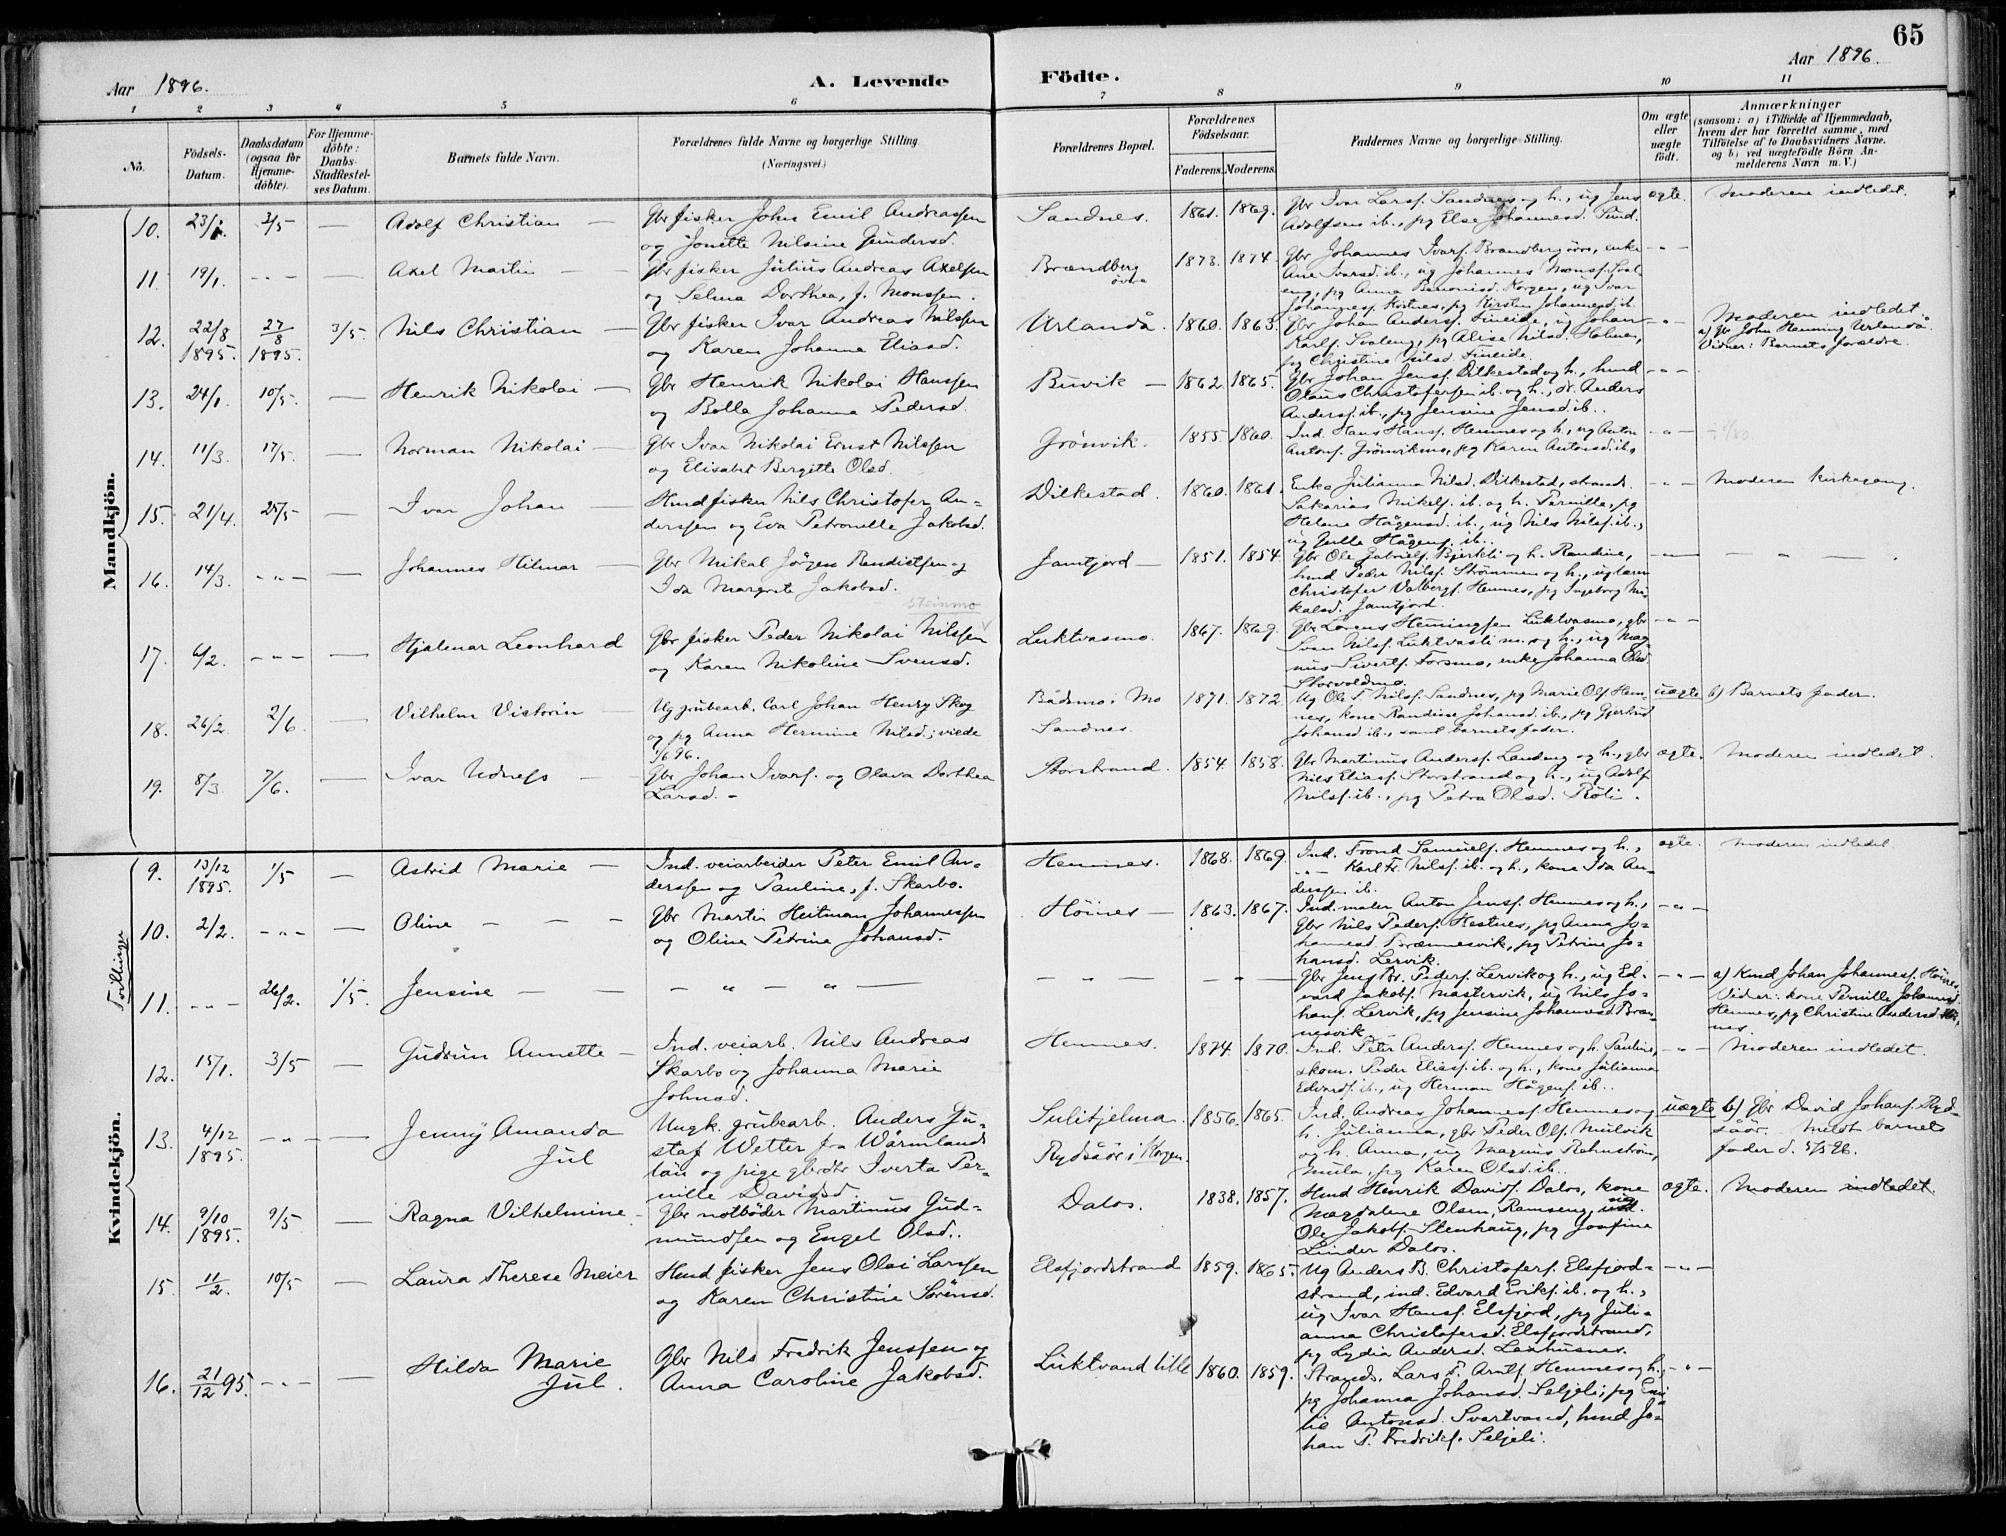 65
Aar 1896.
A. Levende
Födte.
Aar 1896.
1 2 3 4 5 6 7 8 9 10 11
No.
Fødsels-
Datum.
Daabsdatum
(ogsaa for
Hjemme-
døbte).
For Hjemme-
døbte:
Daabs-
Stadfestel-
ses Datum.
Barnets fulde Navn.
Forældrenes fulde Navne og borgerlige Stilling
(Næringsvei.)
Forældrenes Bopæl.
Forældrenes
Födselsaar.
Faderens. Moderens.
Faddernes Navne og borgerlige Stilling.
Om ægte
eller
uægte
født.
Anmærkninger
(saasom: a) i Tilfælde af Hjemmedaab,
hvem der har forrettet samme, med
Tilføielse af to Daabsvidners Navne.
og b) ved uægtefödte Börn An-
melderens Navn m. V.)
Mandkjön.
10. 23/1. 3/5 — Adolf Christian —
Gbr fisker John Emil Andreassen
og Jonette Nilsine Gundersd.
Sandnes. 1861. 1869.
Gbr Ivar Larsf. Sandnes og h., ug Jens
Adolfsen ib., pg Else Johannesd. Sund.
ægte. Moderen indledet.
11. 19/1. - " - — Axel Martin —
Gbr fisker Julius Andreas Axelsen
og Selma Dorthea, f. Monssen.
Brændberg
øvre
1873. 1874
Gbr Johannes Ivarf. Brændberg övre, enke
Ane Ivarsd. ib., ug Johannes Monsf. Sval-
eng, pg Anna Benonisd. Korgen, ug Ivar
Johannesf. Hestnes, pg Kirsten Johannesd. ib.
- " -
12. 22/8 1895. 27/8 1895. 3/5. Nils Christian —
Gbr fisker Ivar Andreas Nilssen
og Karen Johanna Eliasd.
Urlandå. 1860. 1863.
Gbr Johan Andersf. Fineide, ug Johan
Karlf. Svaleng, pg Alise Nilsd. Holmen,
pg Christine Nilsd. Fineide.
- " - Moderen indledet.
a) Gbr John Henning Urlandå.
Vidner: Barnets forældre.
13. 24/1. 10/5. — Henrik Nikolai —
Gbr Henrik Nikolai Hanssen
og Bolla Johanna Pedersd.
Buvik — 1862. 1865.
Gbr Johan Jensf. Dilkestad og h., hmd
Olaus Christofersen ib. og h., Anders
Andersf. ib., pg Jensine Jensd. ib..
- " -
14. 11/3. 17/5. — Norman Nikolai —
Gbr Ivar Nikolai Ernst Nilssen
og Elisabet Bergitte Olsd.
Grönvik. 1855. 1860.
Ind. Hans Hansf. Hemnes og h., ug Anton
Antonf. Grönvikmo, pg Karen Antonsd. ib.
- " -
15. 21/4. 25/5 — Ivar Johan —
Hmd fisker Nils Christofer An-
derssen og Eva Petronelle Jakobsd.
Dilkestad. 1860. 1861.
Enke Julianna Nilsd. Dilkestad, strands.
Sakarias Mikelf. ib. og h. Pernille, pg
Helena Hågensd. ib., ug Nils Nilsf. ib.,
ug Julle Hågenf. ib..
- " - Moderen kirkegang.
16. 14/3. - " - — Johannes Hilmar —
Gbr Mikal Jörgen Rendictsen og
Ida Margrete Jakobsd.
Jamtjord — 1851. 1854
Gbr Ole Gabrielf. Bjerkli og h. Randine,
hmd Peder Nilsf. Strömmen og h., ug lærer
Christofer Valbergf. Hemnes, pg Ingeborg Mi-
kalsd. Jamtjord.
- " - — " — .
Steinmo
17. 6/2. - " - — Hjalmar Leonhard
Gbr fisker Peder Nikolai Nilssen
og Karen Nikoline Svensd.
Luktvasmo. 1867. 1869.
Gbr Lorens Henningsen Luktvasmo, gbr
Sven Nilsf. Luktvasli m. og h., ug Mag-
nus Sivertf. Forsmo, enke Johanna Olsd
Storvoldmo.
- " -
18. 26/2. 2/6. — Vilhelm Victorin —
Ug grubearb. Carl Johan Henry Skog
og pg Anna Hermine Nilsd.; viede
1/6 96.
Bådsmo i Mo
Sandnes.
1871. 1872
Ug Ole T. Nilsf. Sandnes, pg Marie Olf. Hem-
nes, kone Randine Johansd. ib., pg Gjertrud
Johansd. ib., samt barnets fader.
uægte b) Barnets fader.
19. 8/3. 7/6. — Ivar Udness —
Gbr Johan Ivarf. og Olava Dorthea
Larsd. -
Storstrand. 1854. 1858.
Gbr Martinus Andersf. Landeng og h., gbr
Nils Eliasf. Storstrand og h., ug Adolf
Nilsf. ib., pg Petra Olsd. Röli.
ægte. Moderen indledet.
Kvindekjön.
9. 13/12 1895. 1/5 — Astrid Marie —
Ind. veiarbeider Peter Emil An-
derssen og Pauline, f. Skarbo.
Hemnes. 1868. 1869.
Ind. Trond Samuelf. Hemnes og h.,
- " - Karl Fr. Nilsf. ib. og h., kone Ida An-
derssen ib.
ægte. Moderen indledet
Tvillinger
10. 2/2. - " - — Oline — — —
Gbr Martin Heitman Johannessen
og Oline Petrine Johansd.
Höines — 1863. 1867.
Ind. maler Anton Jensf. Hemnes og h.,
Gbr Nils Pedersf. Hestnes, pg Anna Jo-
hannesd. Brænnesvik, pg Petrine Jo-
hansd. Lervik.
- " -
11. - " - 26/2. 1/5. Jensine — —
— " — " —
— " — - " -
Gbr Jens Br. Pedersf. Lervik og h., ug Ed-
vard Jakobf. Mastervik, ug Nils Jo-
hanf. Lervik, pg Jensine Johannesd. Bræn-
nesvik.
- " - a) Kmd Johan Johannesf. Höines.
Vidner: kone Pernille Johannesd.
Hemnes, pg Christine Andersd. Höi-
nes.
12. 15/1. 3/5 — Gudrun Annette —
Ind. veiarb. Nils Andreas
Skarbo og Johanna Marie
Johnsd.
Hemnes. 1874. 1870.
Ind. Peter Andersf. Hemnes og h. Pauline,
skom. Peder Eliasf. ib. og h., kone Julianna
Edvardf. ib., ug Herman Hågenf. ib..
- " - Moderen indledet.
13. 4/12 1895. - " - — Jenny Amanda
Jul
Ungk. grubearb. Anders Gu-
staf Wetter fra Wärmlands
län og pige gbrdtr Iverta Per-
nille Davidsd.
Sulitjelma
Rydsåör i Korgen.
1856. 1865.
Ind. Andreas Johannesf. Hemnes og
h. Julianna, gbr Peder Olf. Mulvik
og h. Anna, ug Magnus Rehnström,
Mula, pg Karen Olsd. ib..
uægte b) Gbr David Johanf. Ryd-
såör. Meldt barnets
fader d. 5/5 96.
14. 9/10 1895. 9/5. — Ragna Vilhelmine —
Gbr notböder Martinus Gud-
mundsen og Engel Olsd..
Dalos. 1838. 1857.
Hmd Henrik Davidf. Dalos, kone
Magdalene Olsen, Ramseng, ug
Ole Jakobf. Stenhaug, pg Josefine
Linder Dalos.
ægte. Moderen indledet.
15. 11/2. 10/5 — Laura Therese Meier
Hmd fisker Jens Olai Larssen
og Karen Christine Sörensd.
Elsfjordstrand 1859. 1865.
Ug Anders B. Christoferf. Elsfjord-
strand, ind. Edvard Erikf. ib. og h.,
ug Ivar Hansf. Elsfjord, pg Juli-
anna Christofersd. Elsfjordstrand,
pg Lydia Andersd. Lexhusnes.
- " -
16. 21/12 95. - " - — Hilda Marie
Jul.
Gbr Nils Fredrik Jenssen og
Anna Caroline Jakobsd.
Luktvand lille 1860. 1859.
Strands. Lars P. Arntf. Hemnes og h.,
pg Johanna Johansd. Seljeli, pg Emi-
lie Antonsd. Svartvand, hmd Jo-
han P. Fredrikf. Seljeli.
- " -